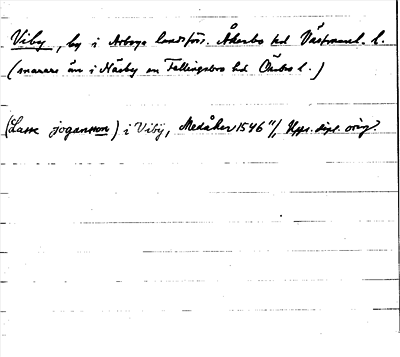 Viby, by i Arboga landsförs. Åkerbo hd Västmanl. l.
(snarare än i Näsby en Fellingsbro hd Örebro l.)
(Lasse jogansson) i Viby, Medåker 1546 11/1 Upps. dipl. orig.